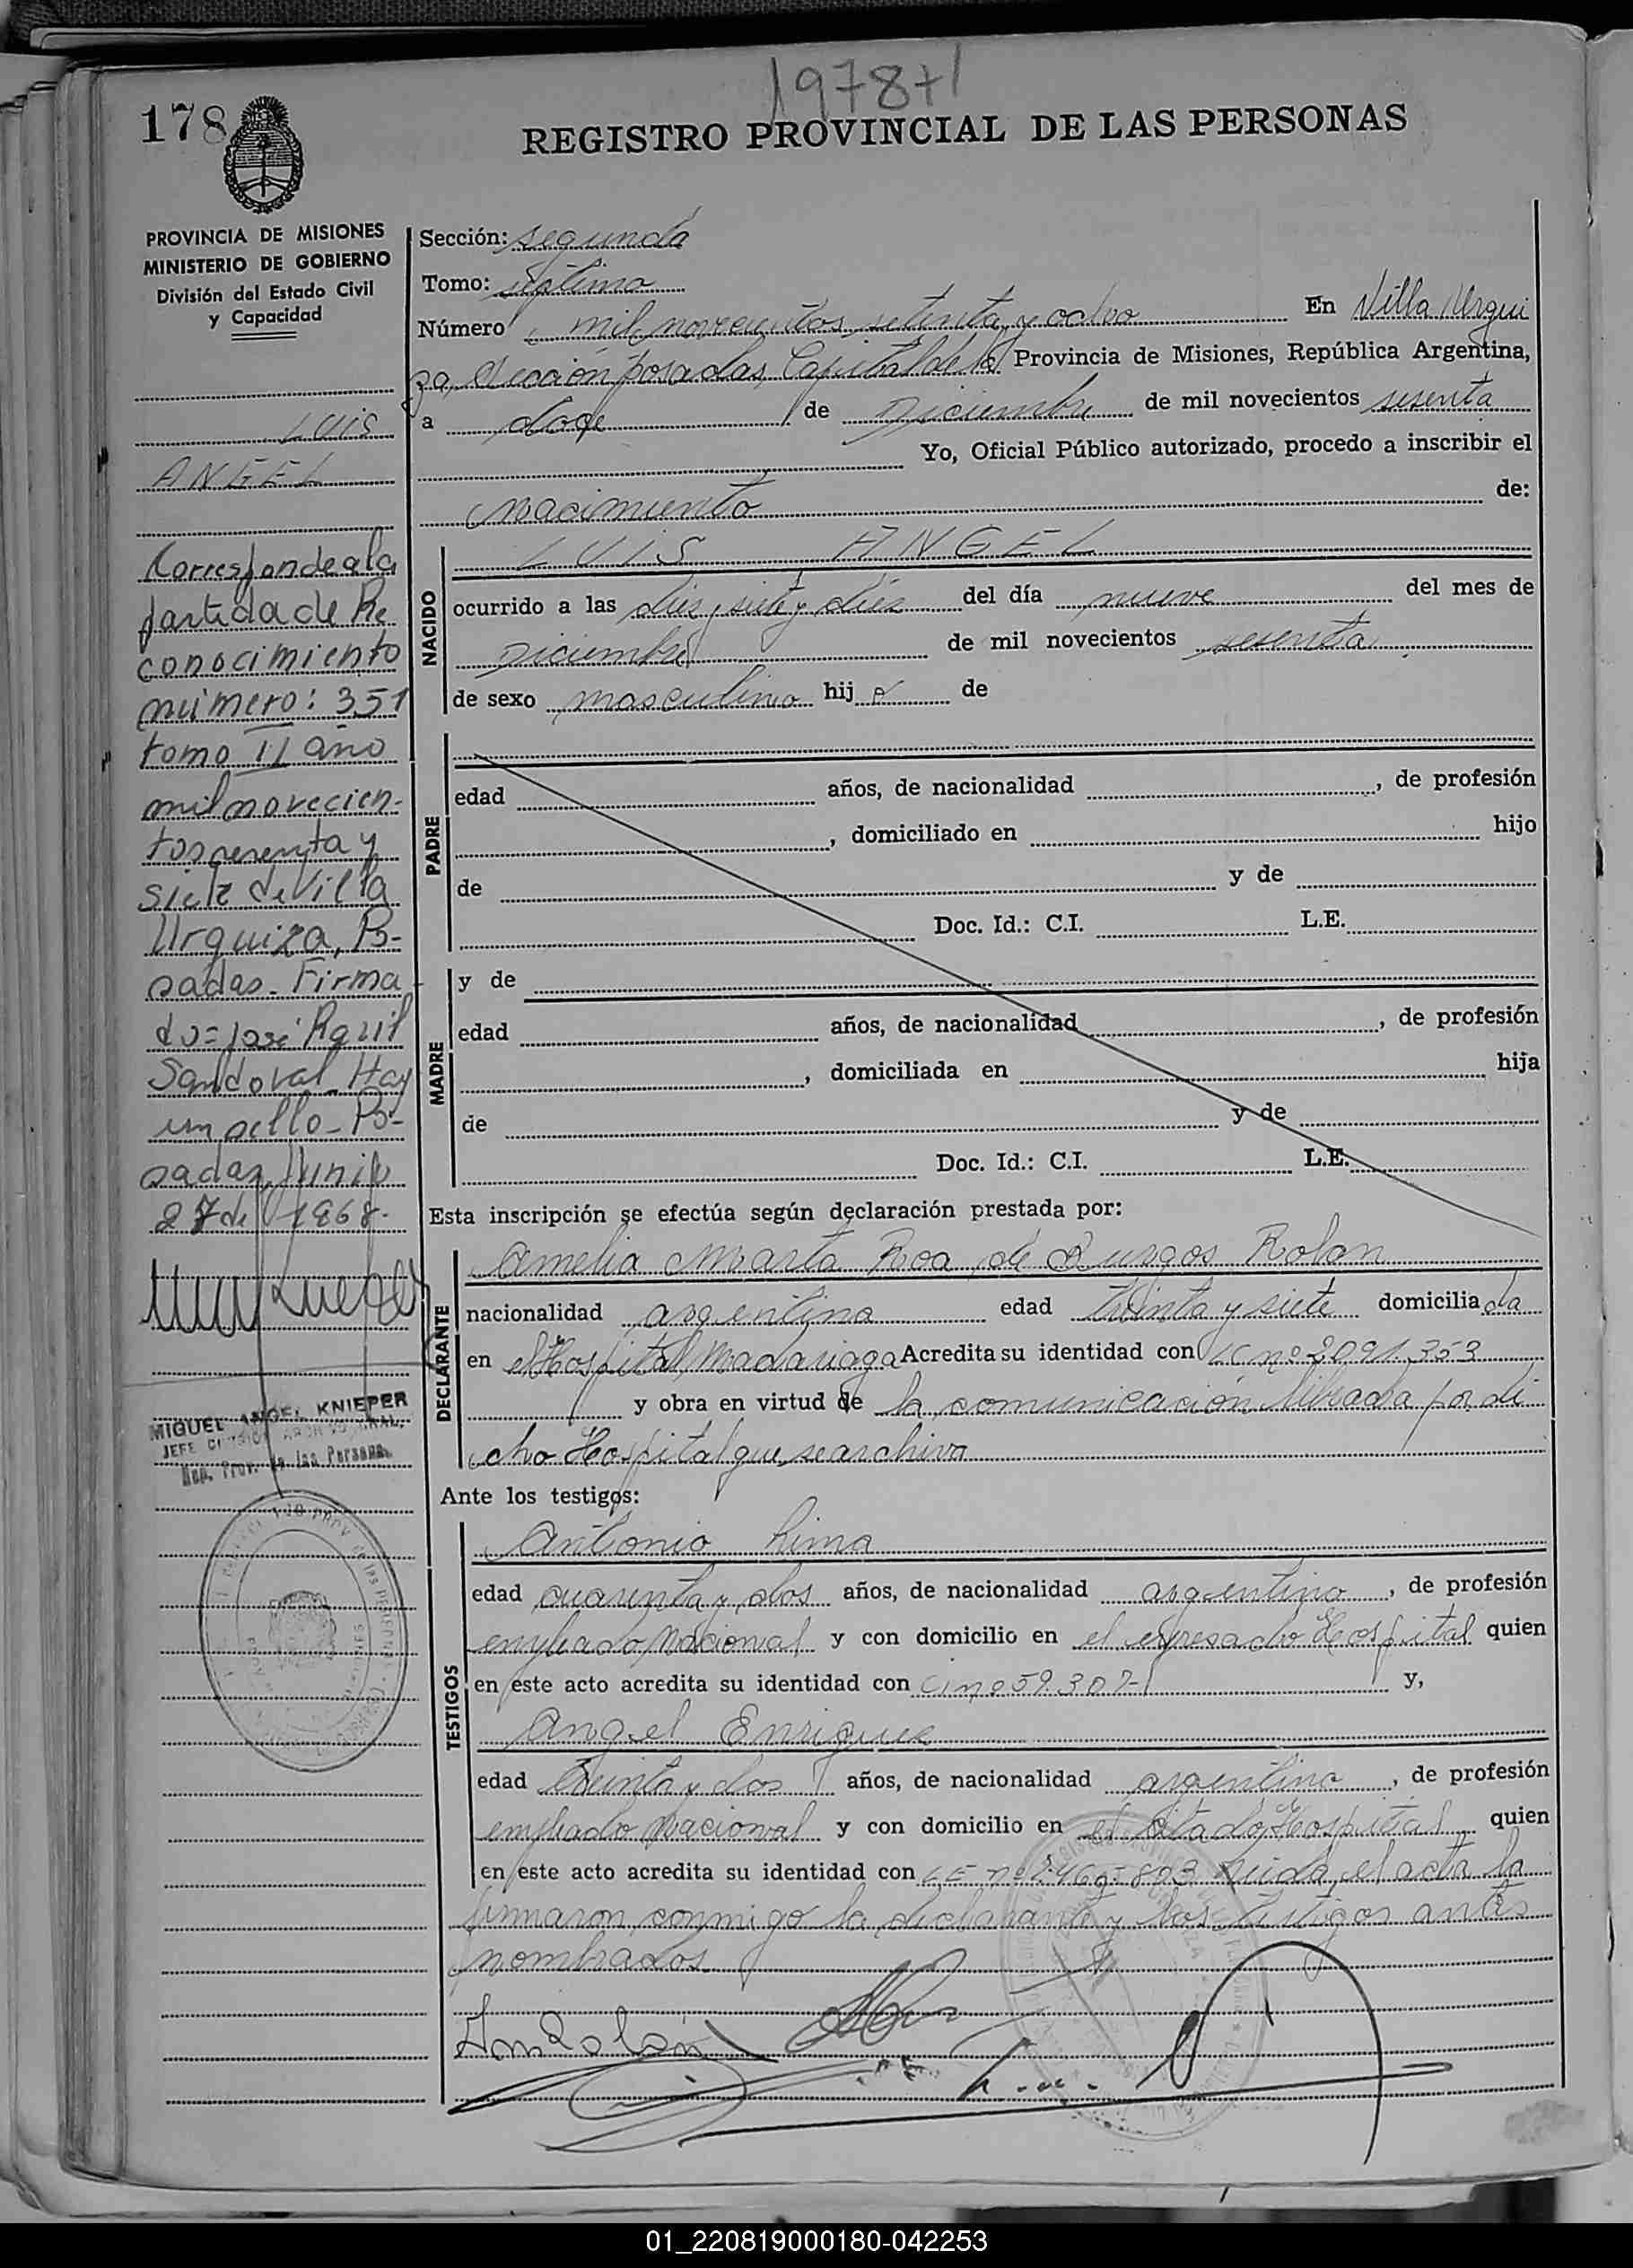 1978+1
178
REGISTRO PROVINCIAL DE LAS PERSONAS
PROVINCIA DE MISIONES
MINISTERIO DE GOBIERNO
División del Estado Civil
y Capacidad
LUIS
ANGEL
Corresponde a la
partida de Re
conocimiento
número: 351
tomo II año
mil novecien-
tos sesenta y
siete de Villa
Urquiza, Po-
sadas. Firma
do = José Raúl
Sandoval Hay
un sello - Po-
sadas, Junio
27 de 1968.
MIGUEL ANGEL KNIEPER
JEFE DIVISION ARCHIVO GRAL.
Reg. Prov. de las Personas
Sección: segunda
Tomo: séptimo
Número mil novecientos setenta y ocho En Villa Urqui
za, Sección Posadas, Capital de la Provincia de Misiones, República Argentina,
a doce de Diciembre de mil novecientos sesenta
Yo, Oficial Público autorizado, procedo a inscribir el
Nacimiento de:
NACIDO
LUIS ANGEL
ocurrido a las diez y siete y diez del día nueve del mes de
Diciembre de mil novecientos sesenta
de sexo masculino hij o de
PADRE
edad años, de nacionalidad , de profesión
, domiciliado en hijo
de y de
Doc. Id.: C.I. L.E.
MADRE
y de
edad años, de nacionalidad , de profesión
, domiciliada en hija
de y de
Doc. Id.: C.I. L.E.
Esta inscripción se efectúa según declaración prestada por:
DECLARANTE
Amelia Marta Roa de Burgos Rolan
nacionalidad argentina edad treinta y siete domicilia da
en el Hospital Madariaga Acredita su identidad con LC nº 2091.353
y obra en virtud de la comunicación librada por di
cho Hospital que se archiva
Ante los testigos:
TESTIGOS
Antonio Lima
edad cuarenta y dos años, de nacionalidad argentino , de profesión
empleado Nacional y con domicilio en el expresado Hospital quien
en este acto acredita su identidad con CI nº 59.307- y,
Angel Enriquez
edad treinta y dos años, de nacionalidad argentino , de profesión
empleado Nacional y con domicilio en el citado Hospital quien
en este acto acredita su identidad con LE nº 803 Leida el acta la
firmaron conmigo la declarante y los testigos antes
nombrados.
01_220819000180-042253